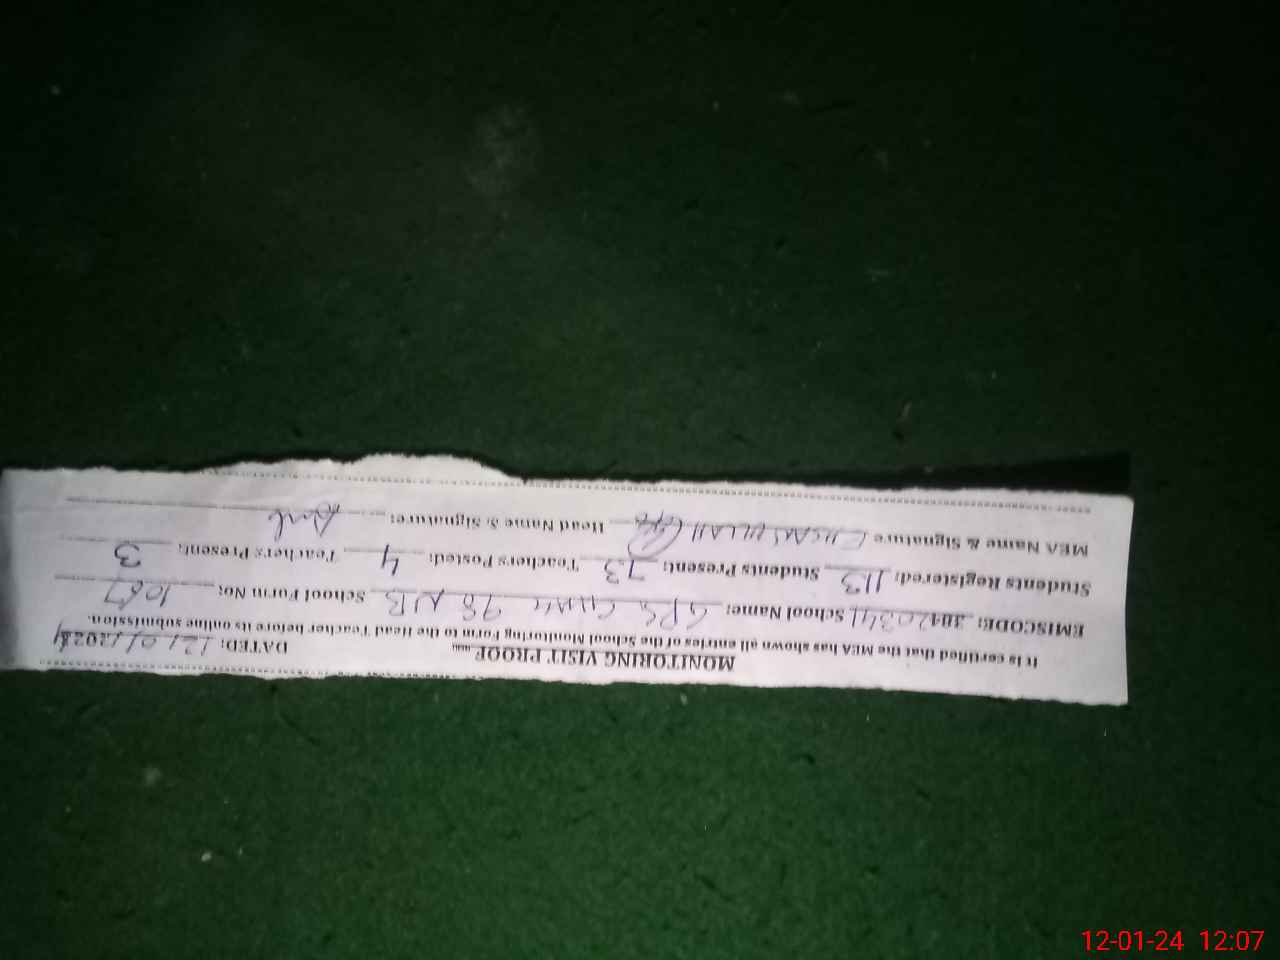 MONITORING VISIT PROOF
DATED: 12/01/2024
It is certified that the MEA has shown all entries of the School Monitoring Form to the Head Teacher before its online submission.
EMISCODE: 38420341 School Name: GPS 98 NB School Form No: 1087
Students Registered: 113 Students Present: 73 Teachers Posted: 4 Teachers Present: 3
MEA Name & Signature EHSAN ULLAH Head Name & Signature:
12-01-24 12:07